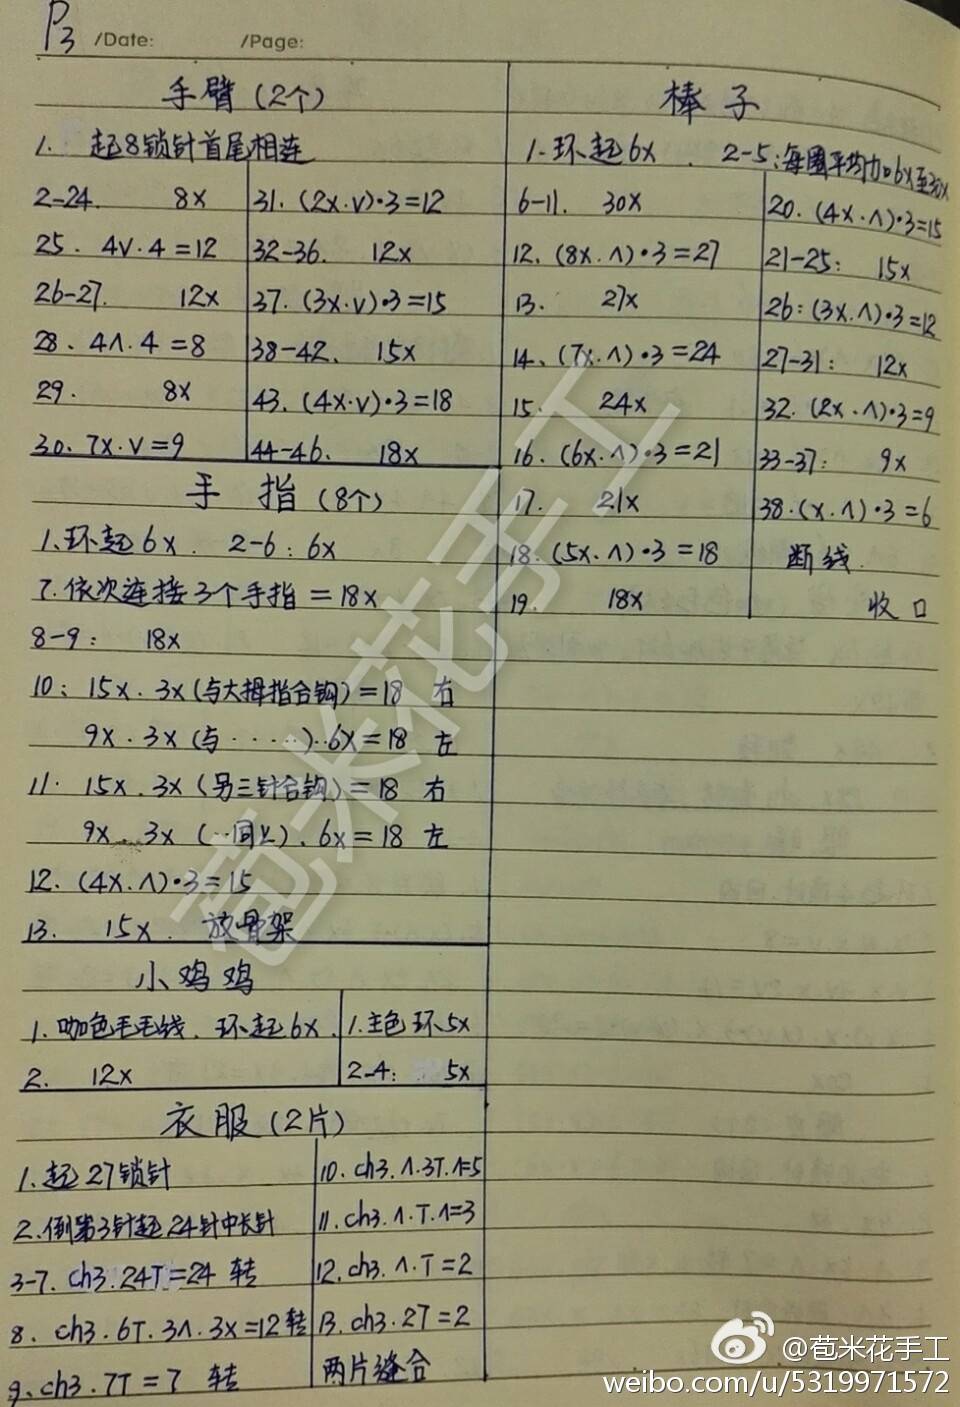 P3 /Date: /Page:
手臂(2个)
1. 起8锁针首尾相连
2-24. 8x
25. 4v.4=12
26-27. 12x
28. 4∧.4=8
29. 8x
30. 7x.v=9
31. (2x.v)·3=12
32-36. 12x
37. (3x.v)·3=15
38-42. 15x
43. (4x.v)·3=18
44-46. 18x
手指(8个)
1. 环起6x. 2-6: 6x
7. 依次连接3个手指=18x
8-9: 18x
10: 15x.3x(与大拇指合钩)=18 右
9x.3x(与·····).6x=18 左
11. 15x.3x(另三针合钩)=18 右
9x.3x(··同上).6x=18 左
12. (4x.∧)·3=15
13. 15x. 放骨架
小鸡鸡
1. 咖色毛毛线. 环起6x.
2. 12x
1. 主色环5x
2-4: 5x
衣服(2片)
1. 起27锁针
2. 倒第3针起24针中长针
3-7. ch3.24T=24 转
8. ch3.6T.3∧.3x=12 转
9. ch3.7T=7 转
10. ch3.∧.3T.∧=5
11. ch3.∧.T.∧=3
12. ch3.∧.T=2
13. ch3.2T=2
两片缝合
棒子
1. 环起6x. 2-5: 每圈平均加6x至30x
6-11. 30x
12. (8x.∧)·3=27
13. 27x
14. (7x.∧)·3=24
15. 24x
16. (6x.∧)·3=21
17. 21x
18. (5x.∧)·3=18
19. 18x
20. (4x.∧)·3=15
21-25: 15x
26: (3x.∧)·3=12
27-31: 12x
32. (2x.∧)·3=9
33-37: 9x
38. (x.∧)·3=6
断线.
收口
苞米花手工
@苞米花手工
weibo.com/u/5319971572